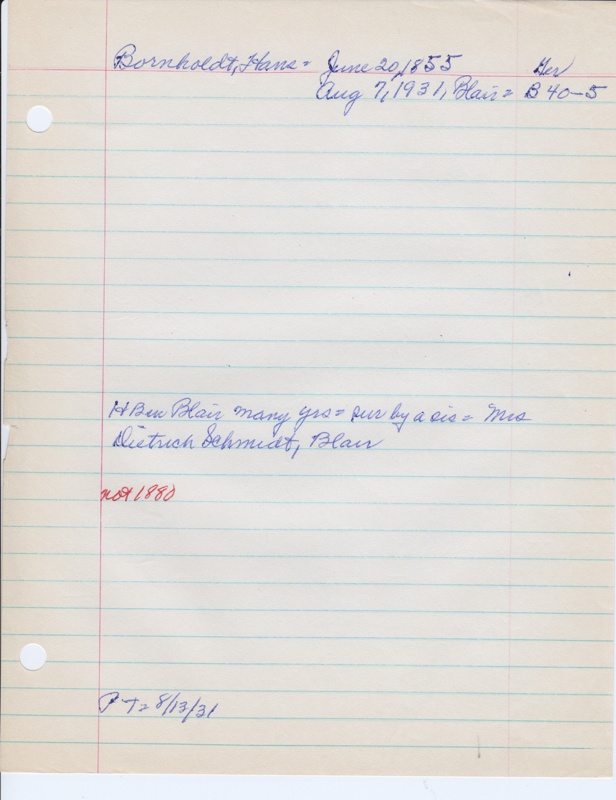 Bornholdt, Hans = June 20, 1855 Ger
Aug 7, 1931, Blair = B 40-5
H Ben Blair many yrs = sur by a sis = Mrs
Dietrich Schmidt, Blair
not 1880
PT = 8/13/31